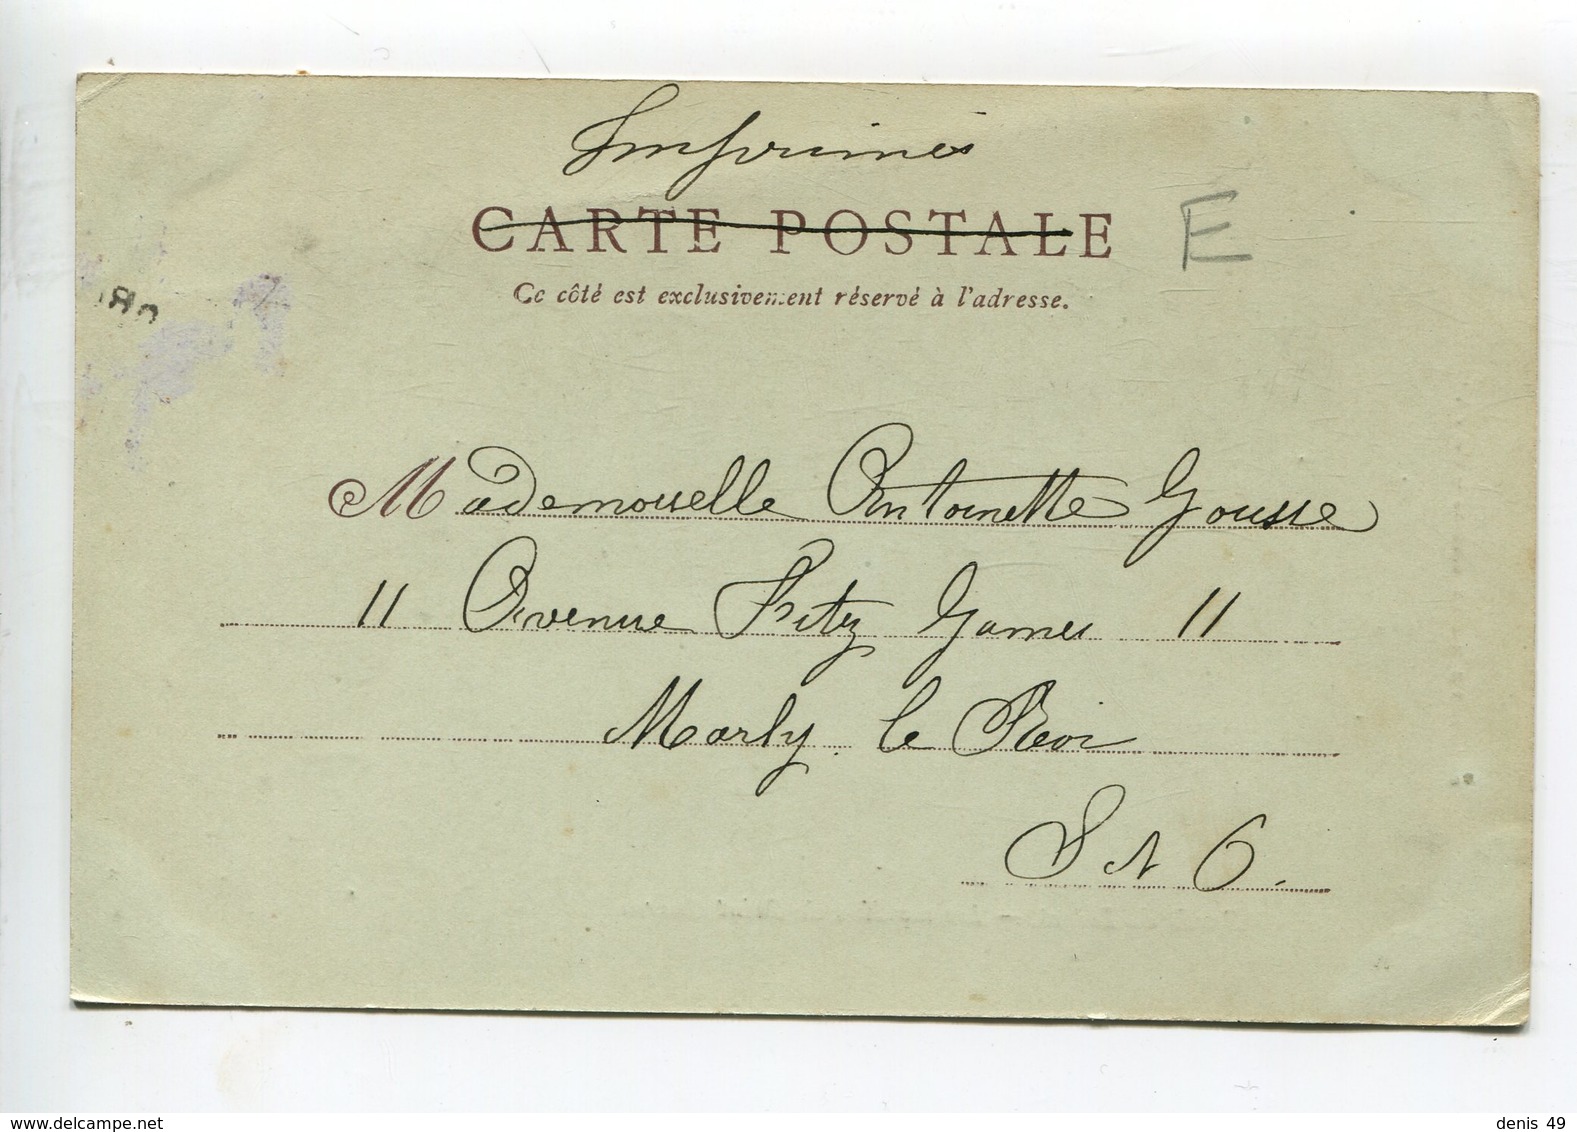 Imprimés
CARTE POSTALE
E
Ce côté est exclusivement réservé à l'adresse.
Mademoiselle Antoinette Gousse
11 Avenue Fitz James 11
Marly le Roi
S et O.
delcampe.net
denis_49